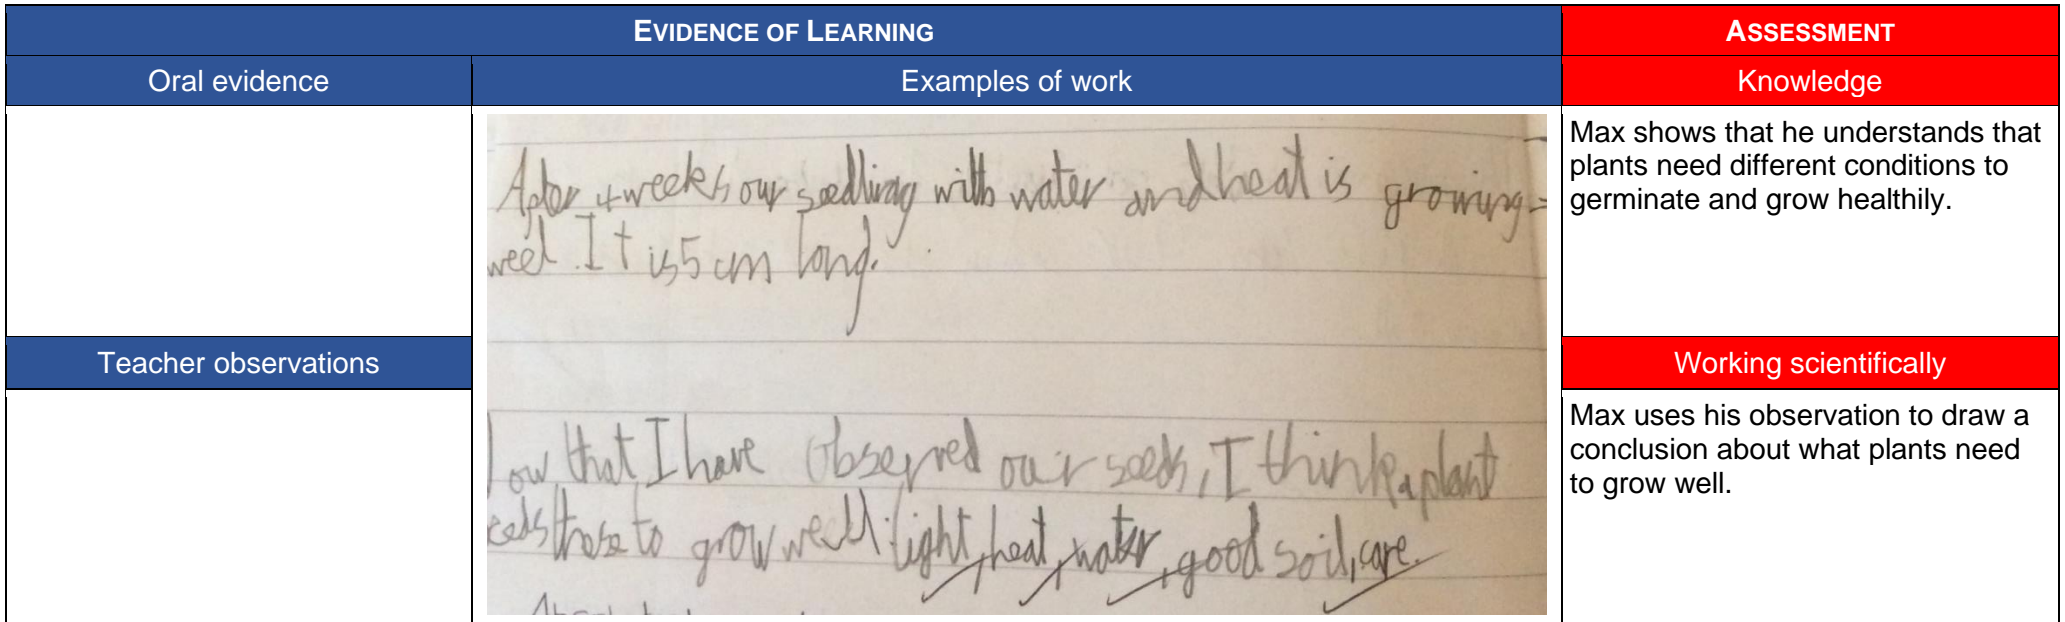 EVIDENCE OF LEARNING
ASSESSMENT
Oral evidence
Examples of work
Knowledge
After 4 weeks our seedling with water and heat is growing
weel. It is 5 cm long.
ow that I have Observed our seeds, I think a plant
eeds these to grow well: light, heat, water, good soil, care.
Max shows that he understands that
plants need different conditions to
germinate and grow healthily.
Teacher observations
Working scientifically
Max uses his observation to draw a
conclusion about what plants need
to grow well.